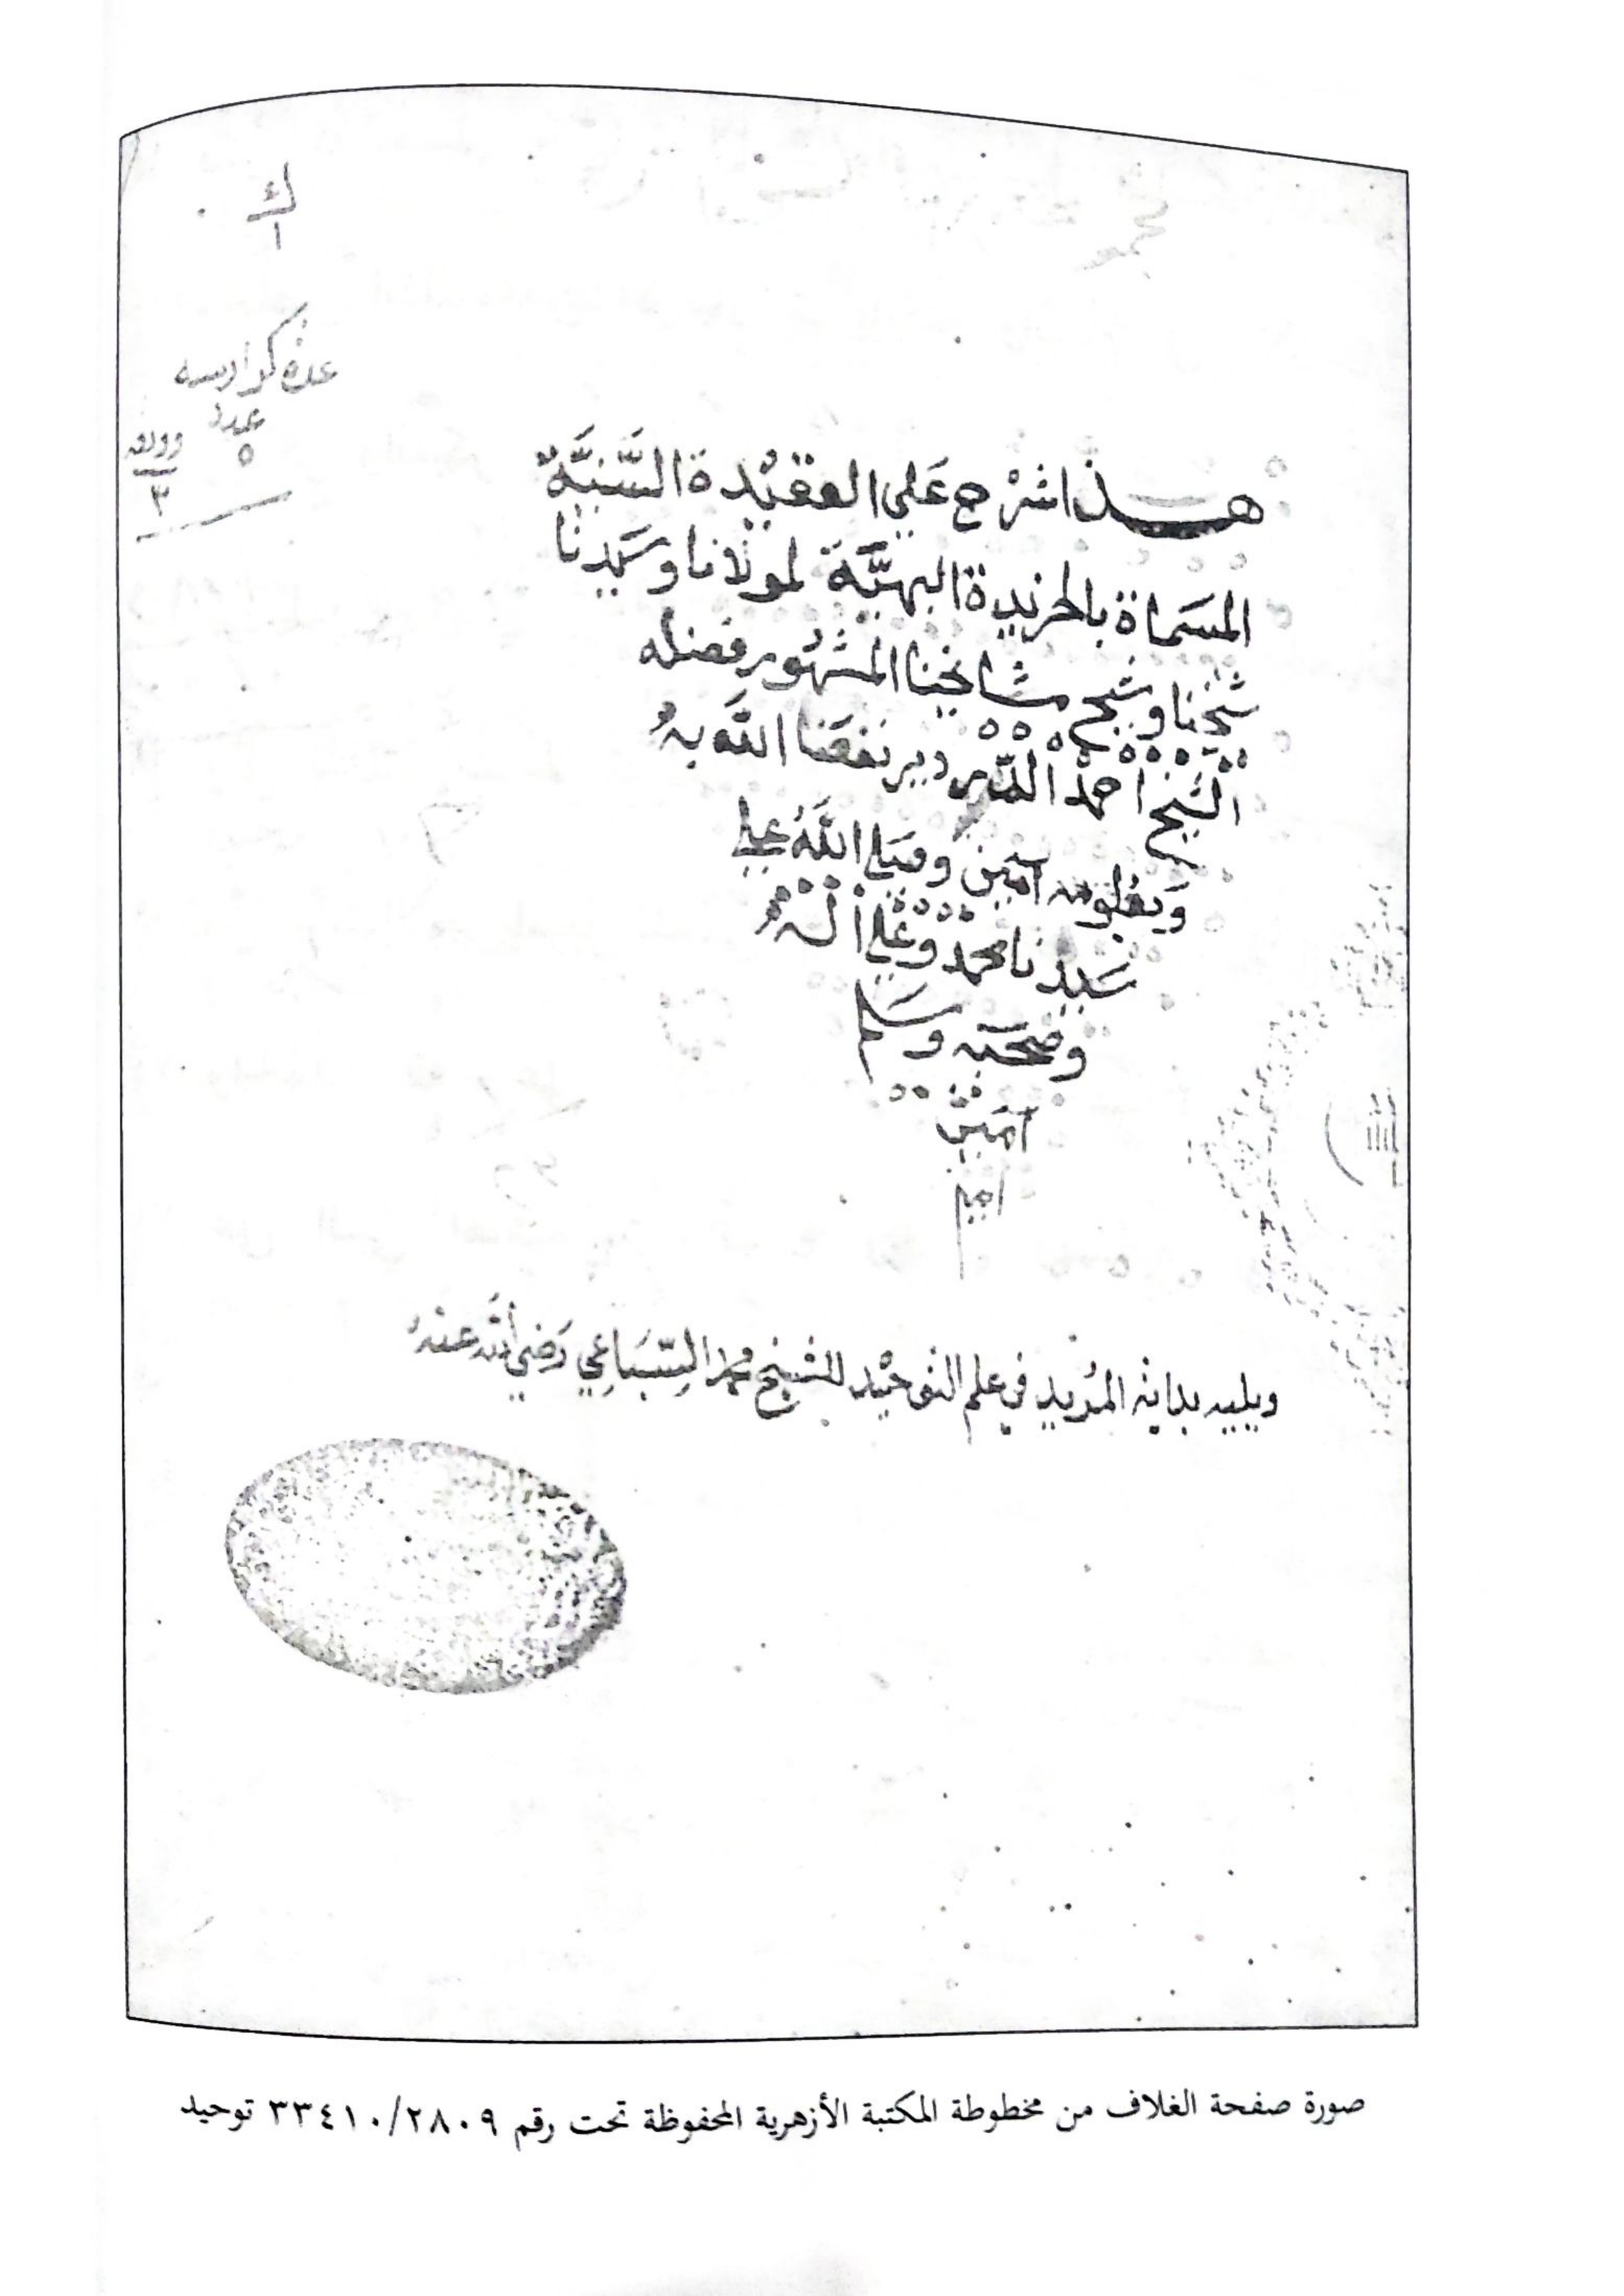 عدة كراديسه
عدد
٥
وورقه
٣
هذا شرح علي العقيدة السَّنيَّة
المسماة بالخريدة البهيَّة لمولانا وسيدنا
شيخنا وشيخ مشايخنا المشهور فضله
الشيخ احمد الدردير نفعنا الله به
وبعلومه آمين وصلي الله علي
سيدنا محمد وعلي اله
وصحبه وسلم
آمين
امين
ويليه بداية المريد في علم التوحيد للشيخ محمد السباعي رضي الله عنه
صورة صفحة الغلاف من مخطوطة المكتبة الأزهرية المحفوظة تحت رقم ٣٣٤١٠/٢٨٠٩ توحيد